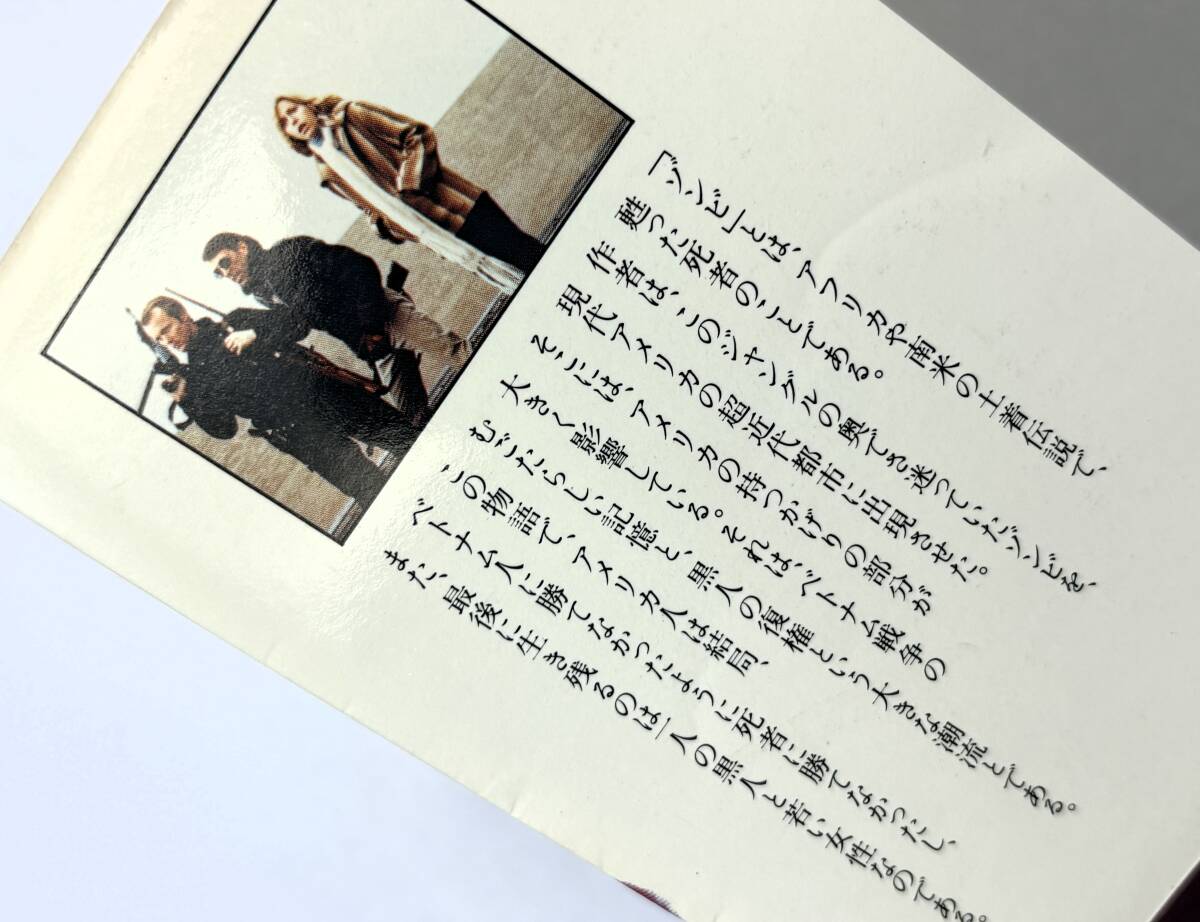 「ゾンビ」とは、アフリカや南米の土着伝説で、
甦った死者のことである。
作者は、このジャングルの奥でさ迷っていたゾンビを、
現代アメリカの超近代都市に出現させた。
そこには、アメリカの持つかげりの部分が
大きく影響している。それは、ベトナム戦争の
むごたらしい記憶と、黒人の復権という大きな潮流とである。
この物語で、アメリカ人は結局、
ベトナム人に勝てなかったように死者に勝てなかったし、
また、最後に生き残るのは一人の黒人と若い女性なのである。